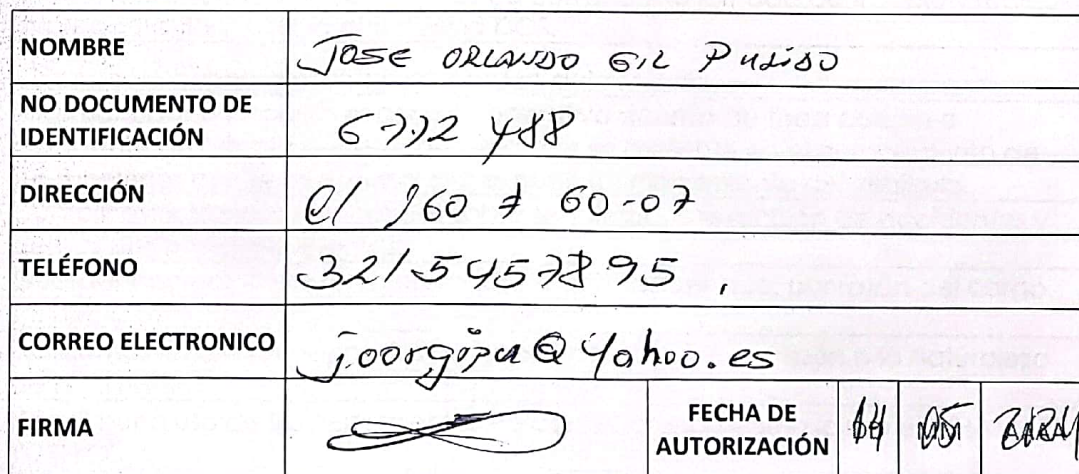 NOMBRE JOSE ORLANDO GIL PULIDO
NO DOCUMENTO DE
IDENTIFICACIÓN 6772 488
DIRECCIÓN Cl 160 # 60-07
TELÉFONO 321 5457895.
CORREO ELECTRONICO
FIRMA
FECHA DE
AUTORIZACIÓN 05